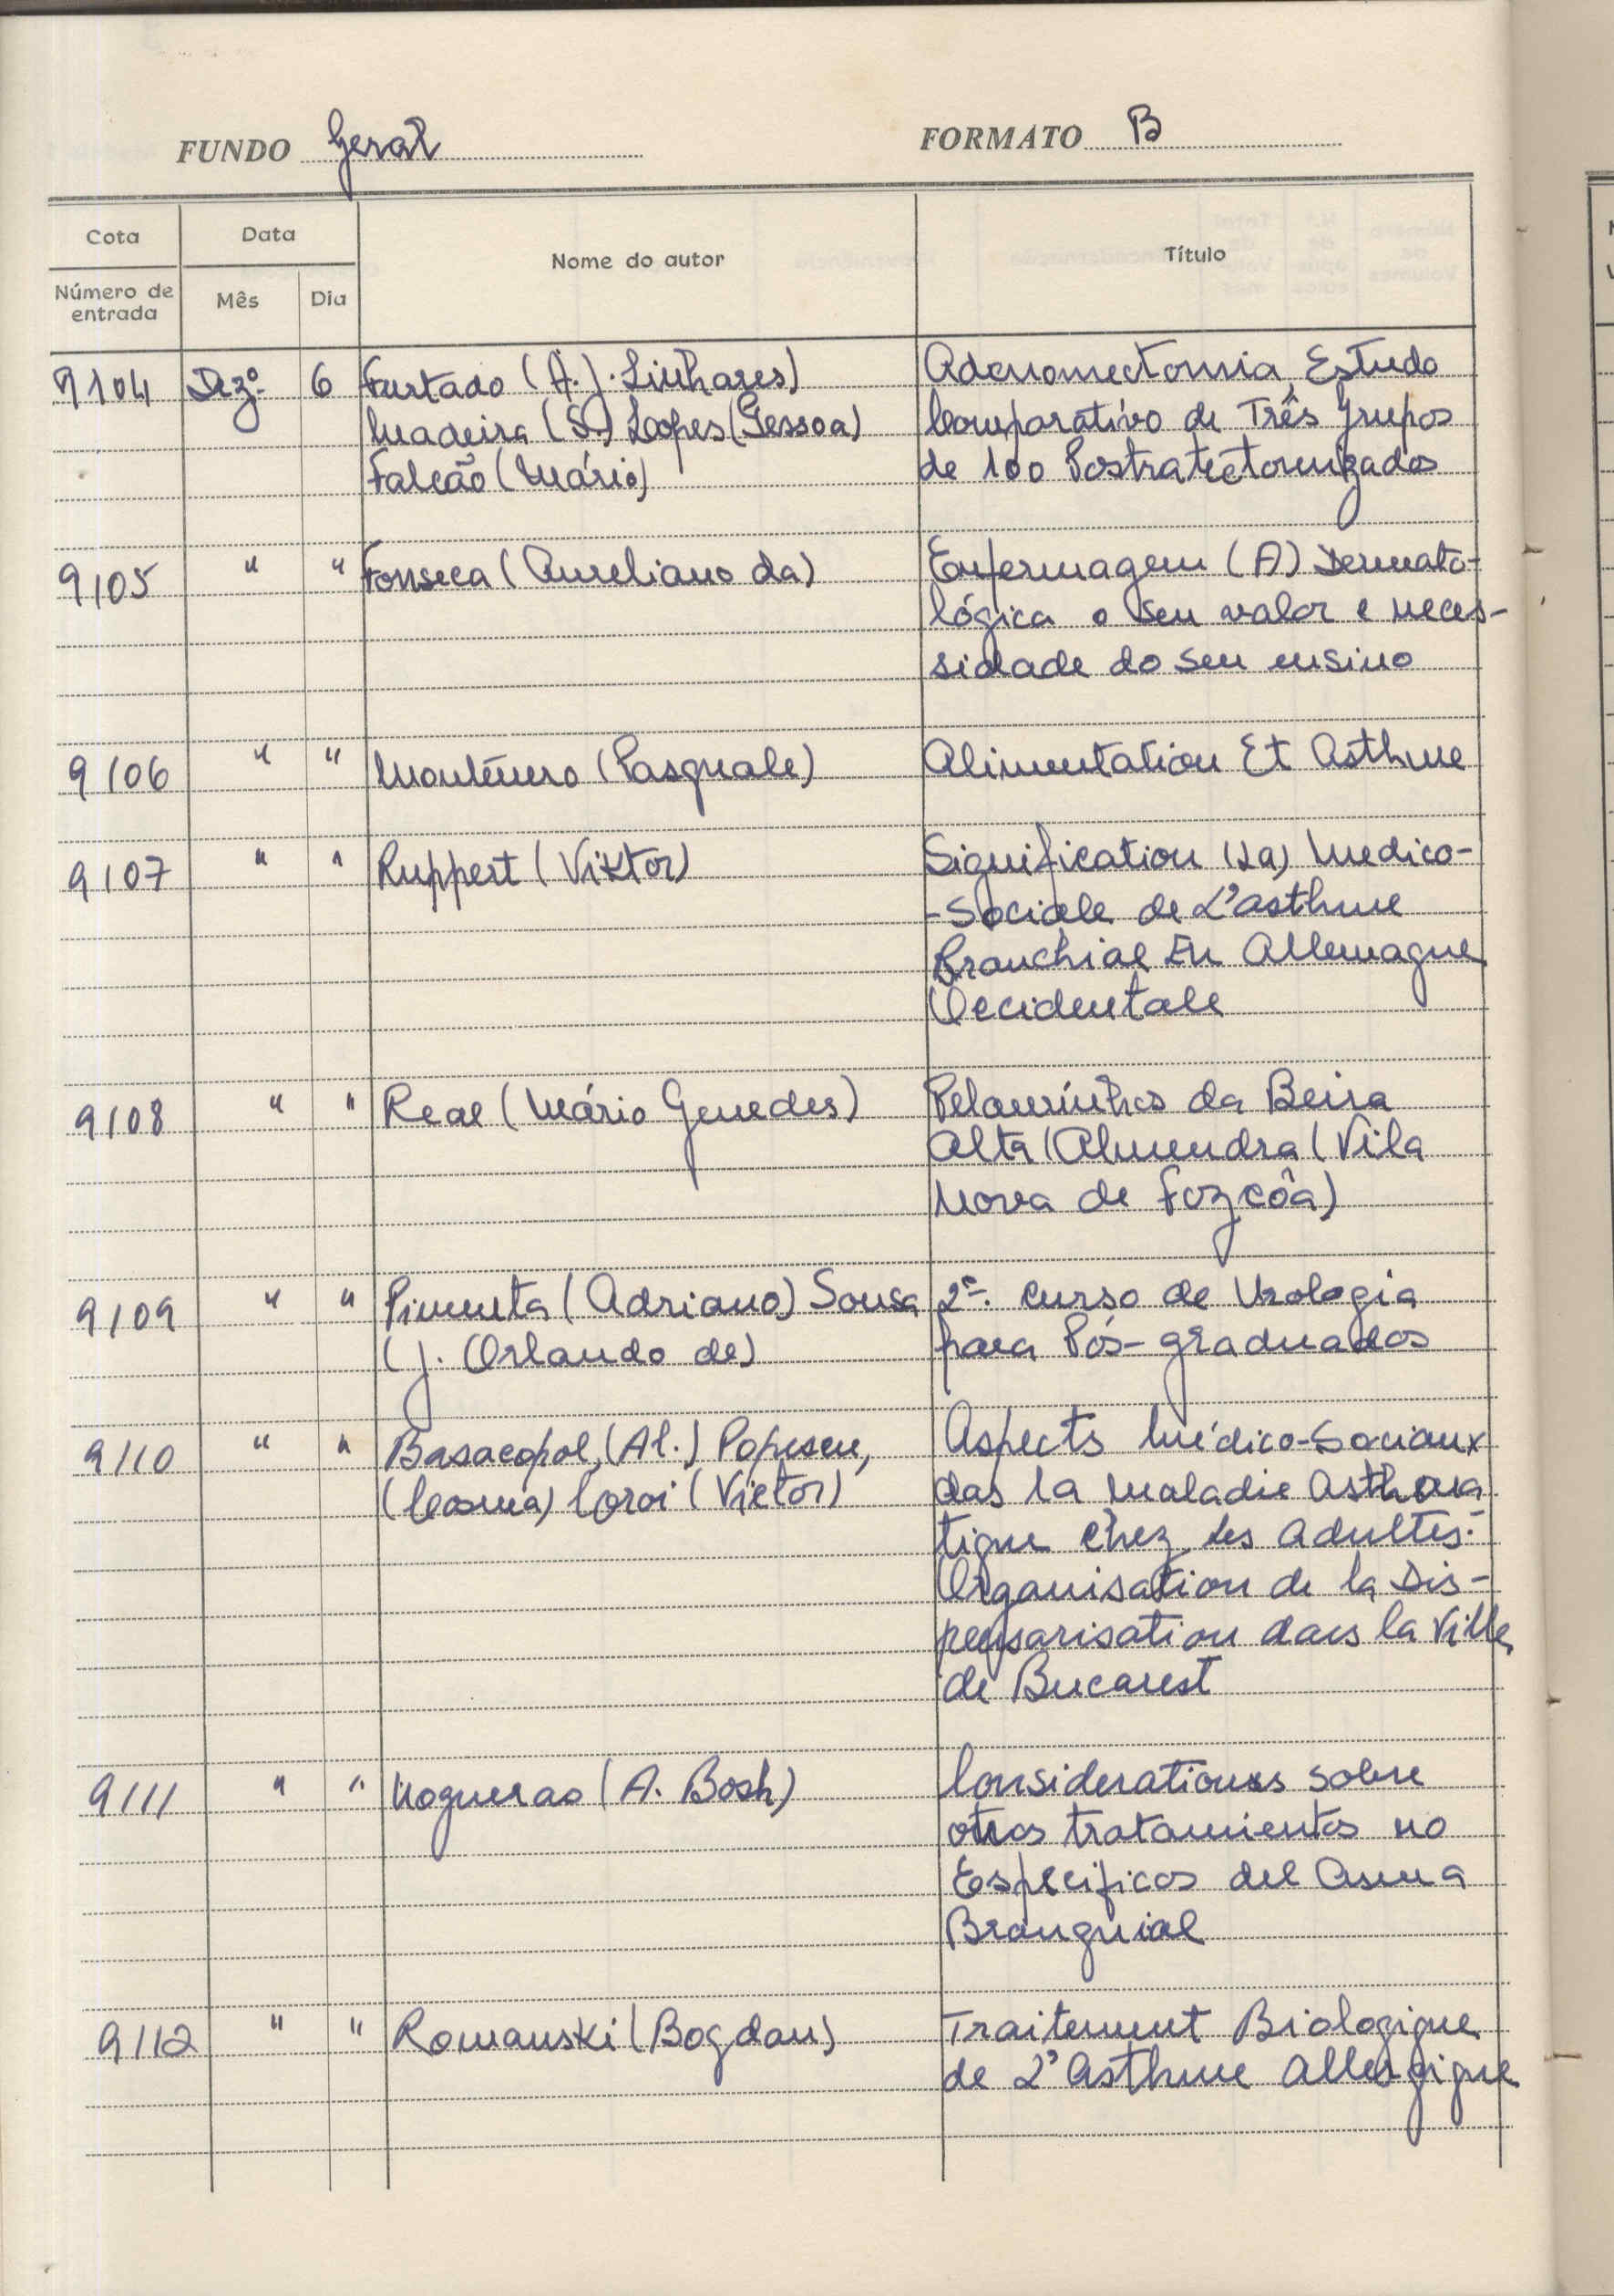 FUNDO Geral FORMATO B
Cota Data Nome do autor Título
Número de entrada Mês Dia
9104 Dezº 6 Furtado (A.J. Linhares) Adenomectomia, Estudo
Madeira (S.) Lopes (Pessoa) Comparativo de Três grupos
Falcão (Mário) de 100 Postratectomizados
9105 " " Fonseca (Aureliano da) Enfermagem (A) Dermato-
lógica o seu valor e neces-
sidade do seu ensino
9106 " " (Pasquale) Alimentation Et Asthme
9107 " " Ruppert (Viktor) Signification (La) Medico-
-Sociale de L'asthme
Bronchial En Allemagne
Occidentale
9108 " " Real (Mário Guedes) Pelourinhos da Beira
Alta (Almendra (Vila
Nova de Fozcôa)
9109 " " Pimenta (Adriano) Sousa 2º. Curso de Urologia
(J. Orlando de) para Pós-graduados
9110 " " Basacopol, (Al.) Popescu, Aspects Médico-Sociaux
(Cosma) Coroi (Victor) das la Maladie Asthma
tique Chez les adultes.
Organisation de la Dis-
pensarisation dans la Ville
de Bucarest
9111 " " Nogueras (A. Bosh) sobre
otros tratamientos no
Especificos del Asma
Bronquial
9112 " " Romanski (Bogdan) Traitement Biologique
de L'Asthme Allergique